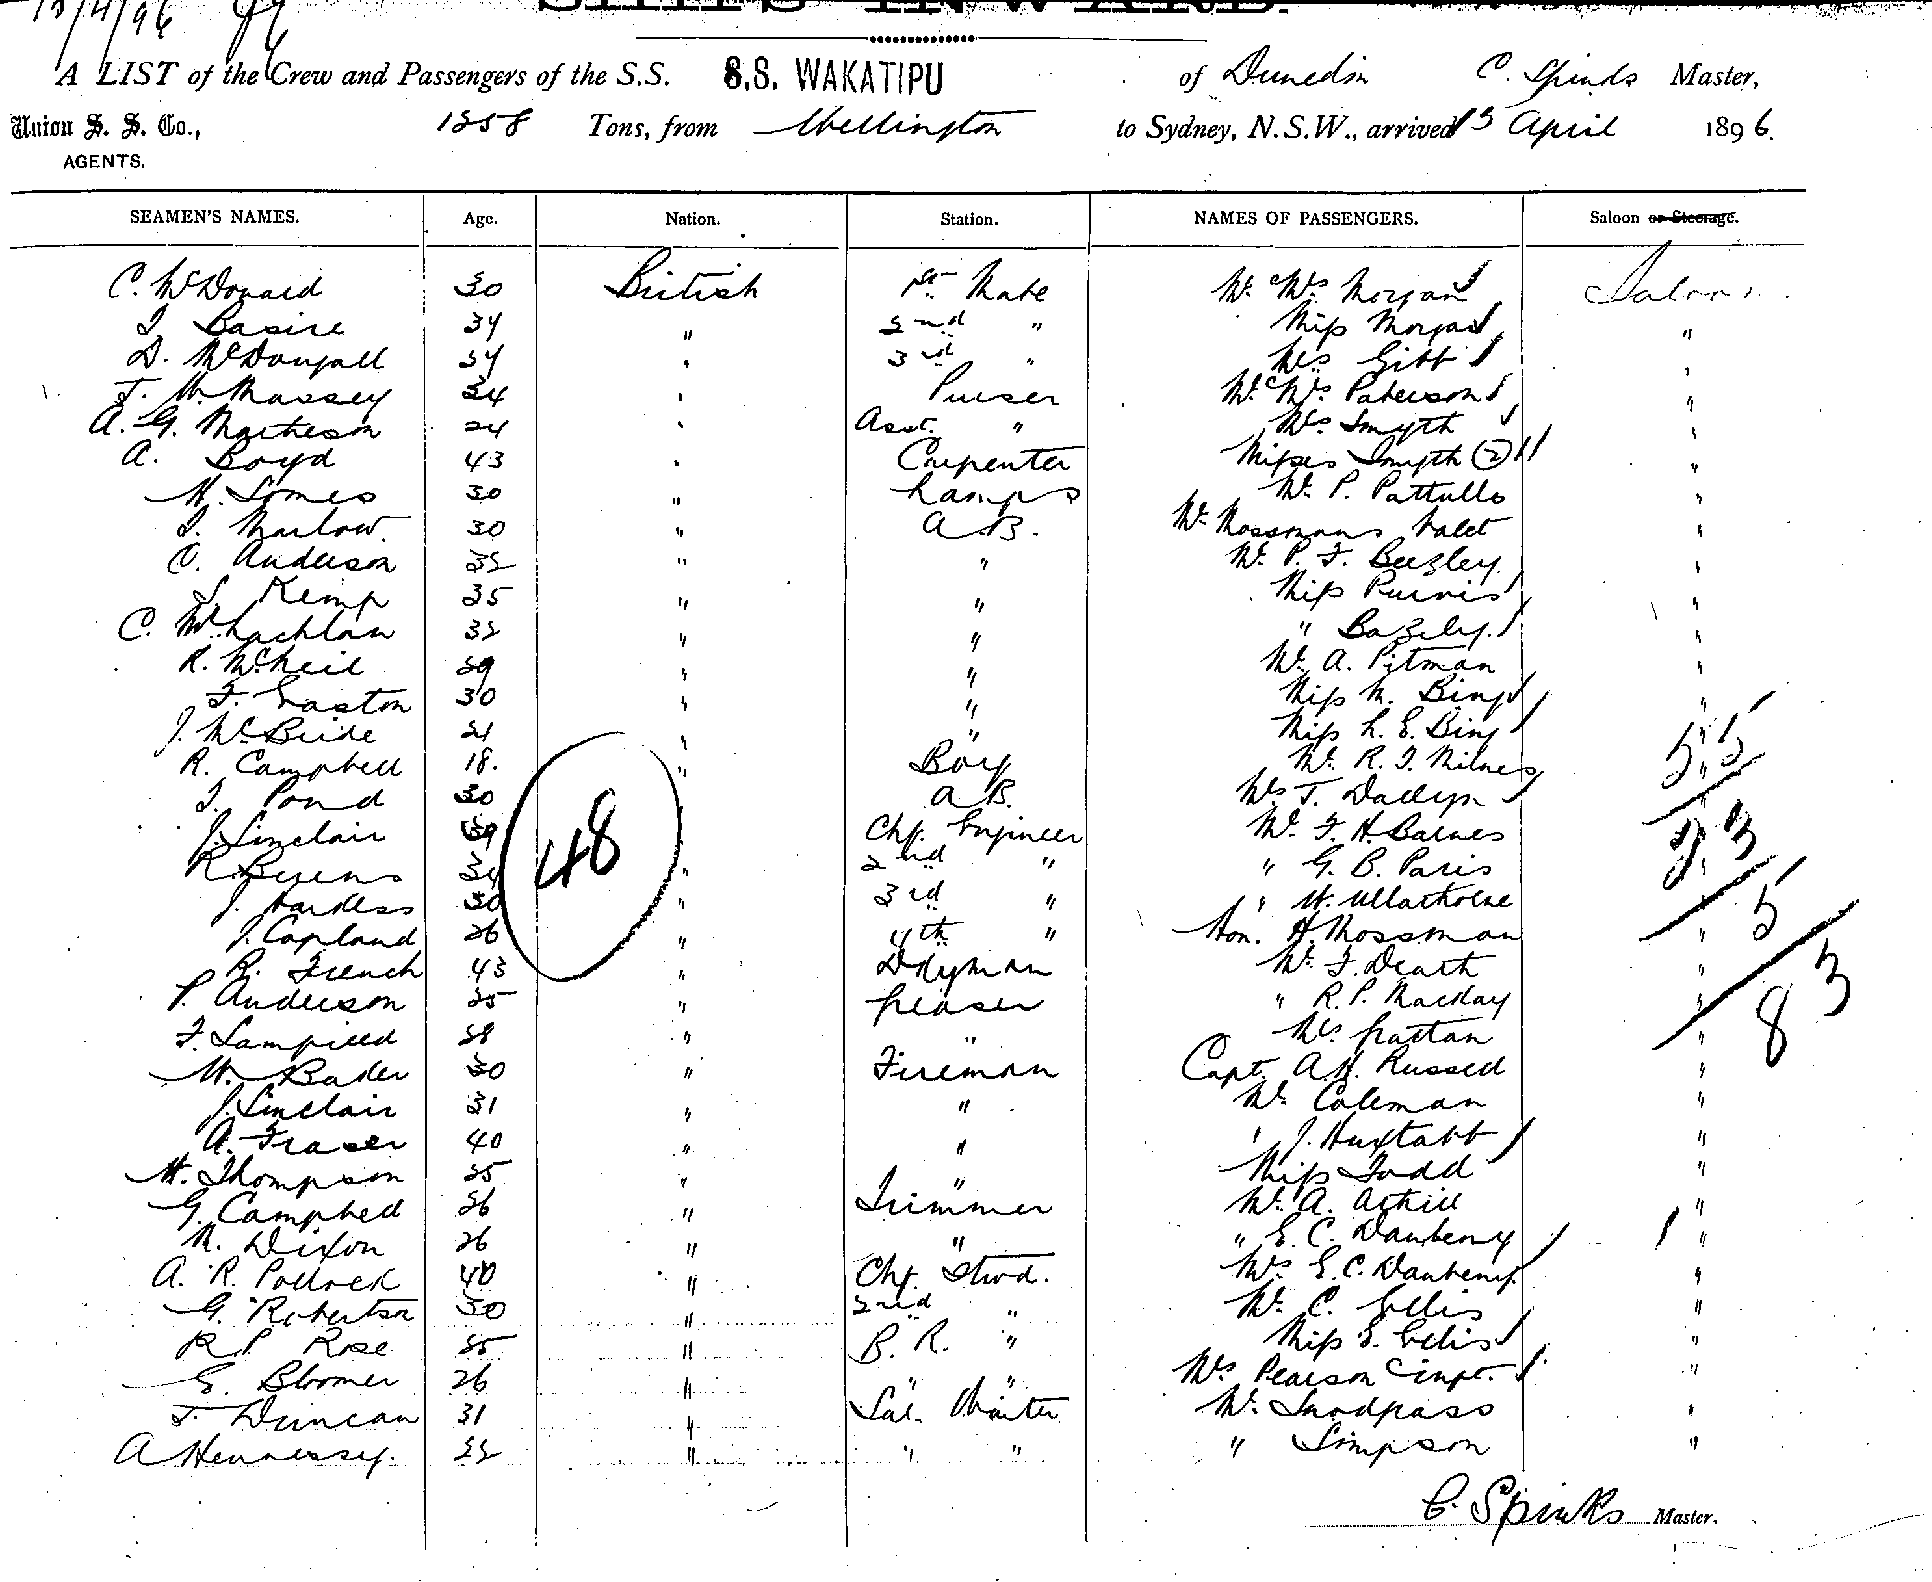 13/4/96
SHIPS INWARD.
A LIST of the Crew and Passengers of the S.S. S.S. WAKATIPU of Dunedin C. Spinks Master,
Union S. S. Co., 1258 Tons, from Wellington to Sydney, N.S.W., arrived 13 April 1896.
AGENTS.
SEAMEN'S NAMES. Age. Nation. Station. NAMES OF PASSENGERS. Saloon or Steerage.
C. McDonald 30 British 1st Mate Mr & Mrs Morgan Saloon
J. Basire 34 " 2nd " Miss Morgan "
D. McDougall 34 " 3rd " Mrs Gibb "
T. W. Massey 34 " Purser Mr & Mrs Paterson "
A. G. Matheson 24 " Asst. " Mrs Smyth "
A. Boyd 43 " Carpenter Misses Smyth (2) "
H. Somes 30 " Lamps Mr P. Pattullo "
J. Marlow 30 " A.B. Mr Mossmans Valet "
O. Anderson 32 " " Mr P. F. Beezley "
S. Kemp 35 " " Miss Purvis "
C. McLachlan 32 " " " Bazely. "
R. McNeil 29 " " Mr A. Pitman "
F. Easton 30 " " Miss M. Bing "
J. McBride 21 " " Miss L. E. Bing " 55
R. Campbell 18. " Boy Mr R. J. Milnes "
J. Pond 30 " A.B. Mrs T.
J. Sinclair 39 48 Chf. Engineer Mr F. H. Barnes 23
R. 34 " 2nd " " G. B. Paris
J. Harkess 30 " 3rd " " W. Ullathorne 5
J. Copland 26 " 4th " Hon. H. Mossman "
R. French 43 " Dkyman Mr F. Death "
P. Anderson 25 " Greaser " R. P. Mackay " 83
F. 28 " " Mrs Grattan "
W. Bader 30 " Fireman Capt. A. H. Russell "
J. Sinclair 31 " " Mr Coleman "
A. Fraser 40 " " " J. "
H. Thompson 25 " " Miss Todd "
G. Campbell 26 " Trimmer Mr A. "
M. Dixon 26 " " " E. C. Daubeny "
A. R. Pollock 40 " Chf. Stwd. Mrs E. C. Daubeny "
G. Robertson 30 " 2nd " Mr C. Ellis "
R. P. Rose 25 " B. R. " Miss E. Ellis "
E. Bloomer 26 " " " Mrs Pearson & inft. "
T. Duncan 31 " Sal. Waiter Mr Snodgrass "
A Hennessey. 22 " " " " Simpson "
C. Spinks Master.